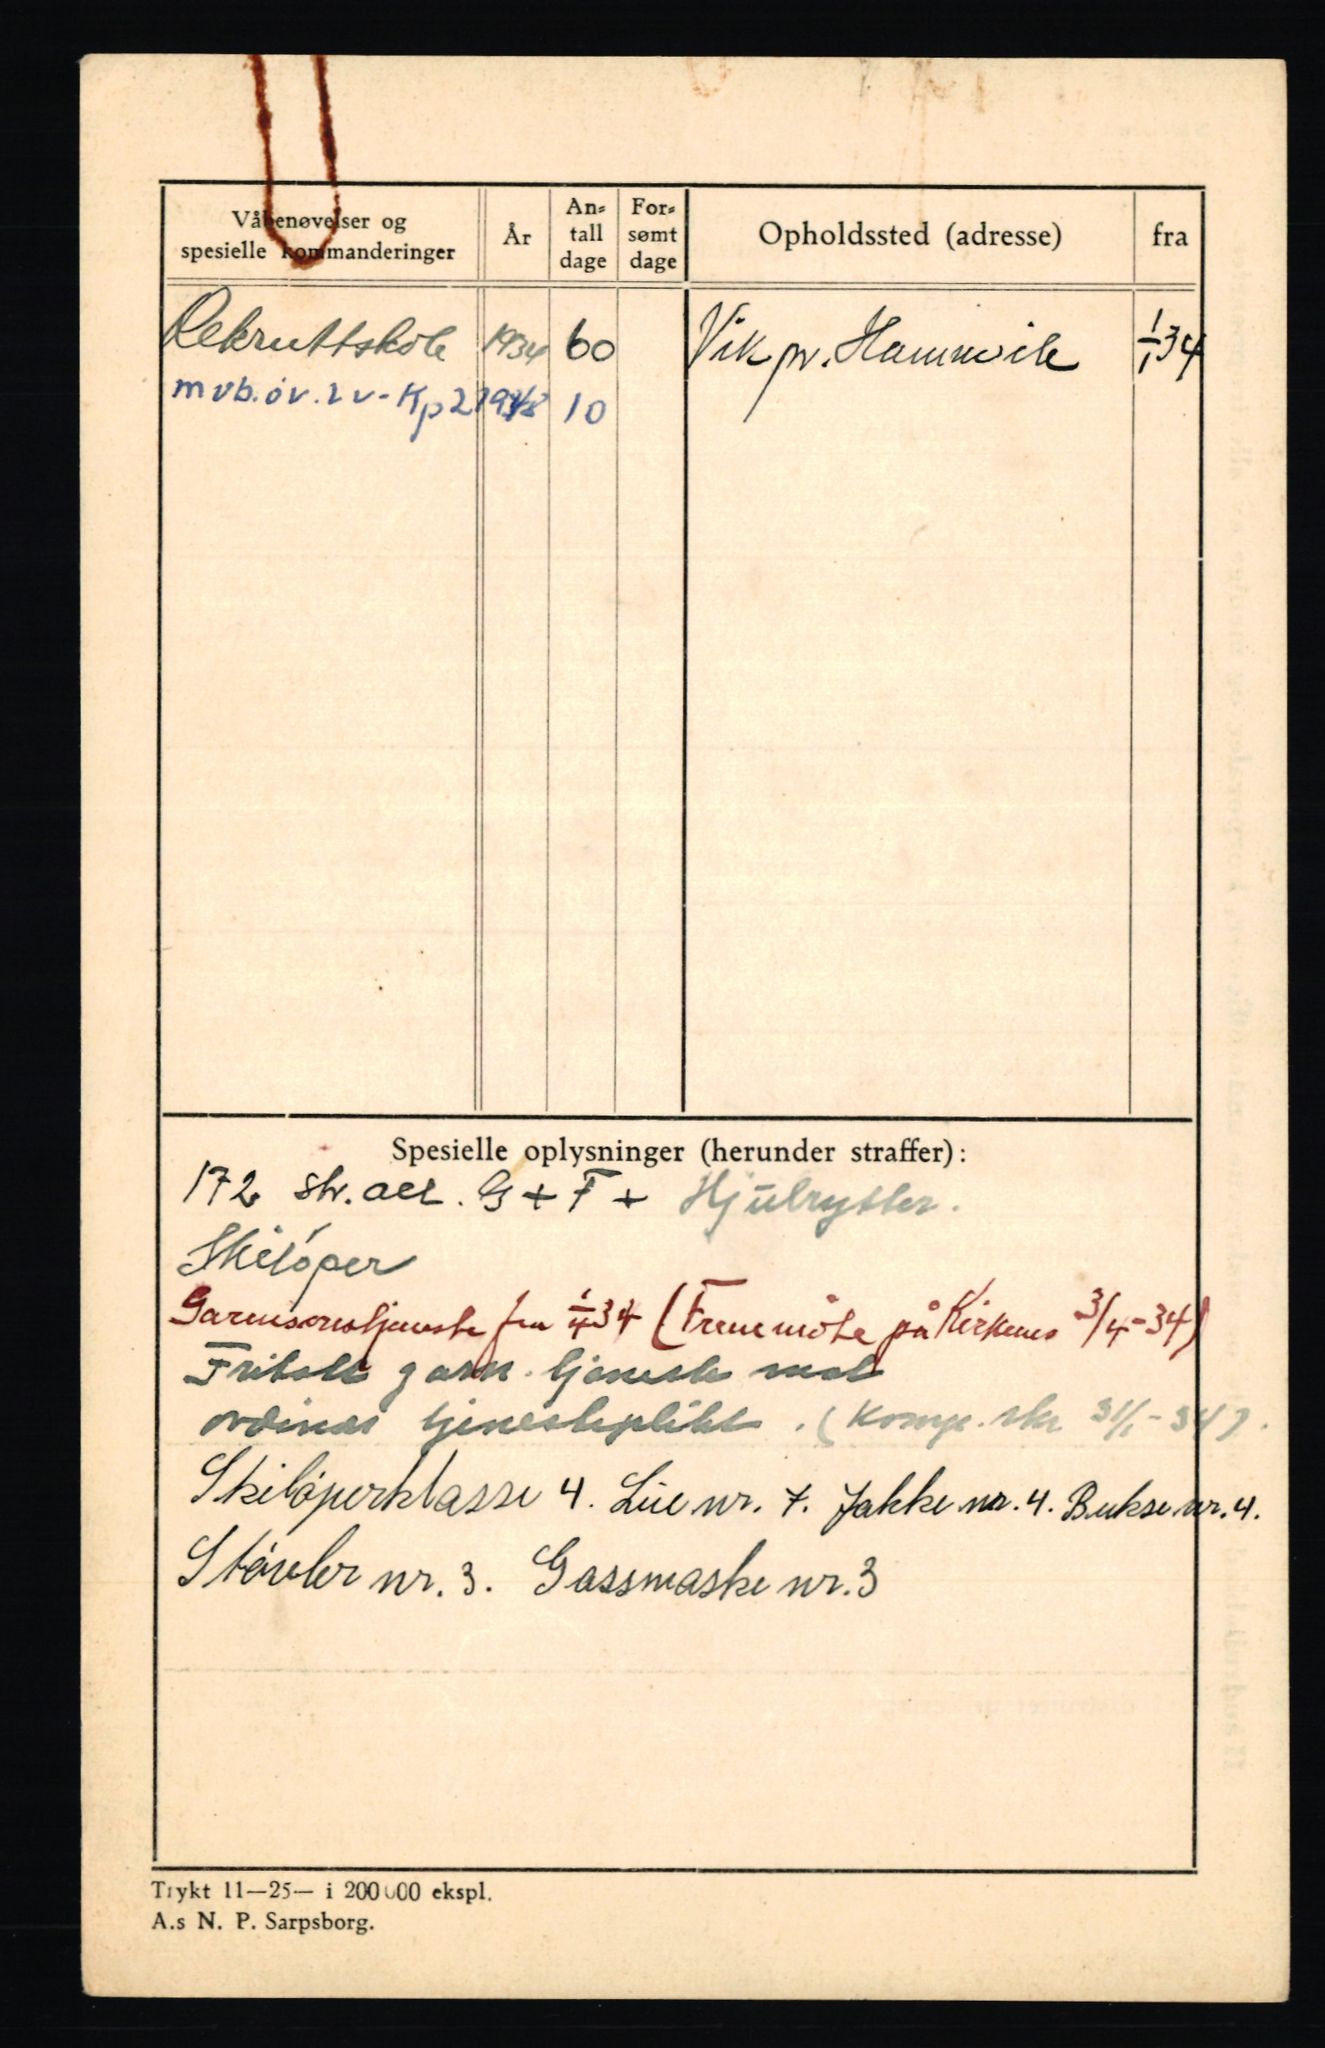 Våbenøvelser og
spesielle kommanderinger
År
An-
tall
dage
For-
sømt
dage
Opholdssted (adresse)
fra
Rekruttskole 1934 60 Vik pr. Hammvik 1/1 34
mvb. øv. 2 v-Kp 2 10
Spesielle oplysninger (herunder straffer):
172 str. G + F + Hjulrytter.
Skiløper
Garnisonstjeneste fra 1/4 34 (Fremmøte på Kirkenes 3/4-34)
Fritatt garn. tjeneste mot
ordinær tjenesteplikt. (Komp. skr 31/1-34).
Skiløperklasse 4. Lue nr. 7. Jakke nr. 4. Bukse nr. 4.
Støvler nr. 3. Gassmaske nr. 3
Trykt 11—25— i 200 000 ekspl.
A.s N. P. Sarpsborg.